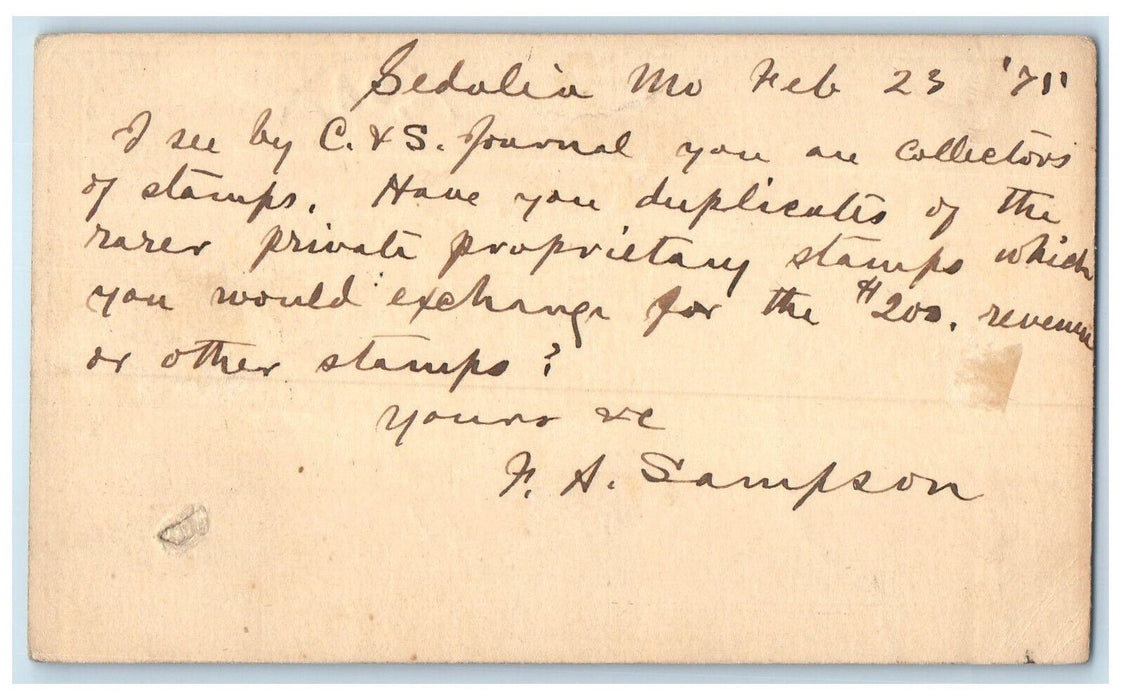 Sedalia Mo Feb 23
I see by C. & S. Journal you are collectors
of stamps. Have you duplicates of the
rarer private proprietary stamps which
you would exchange for the $200. revenue
or other stamps?
Yours &c
F. A. Sampson